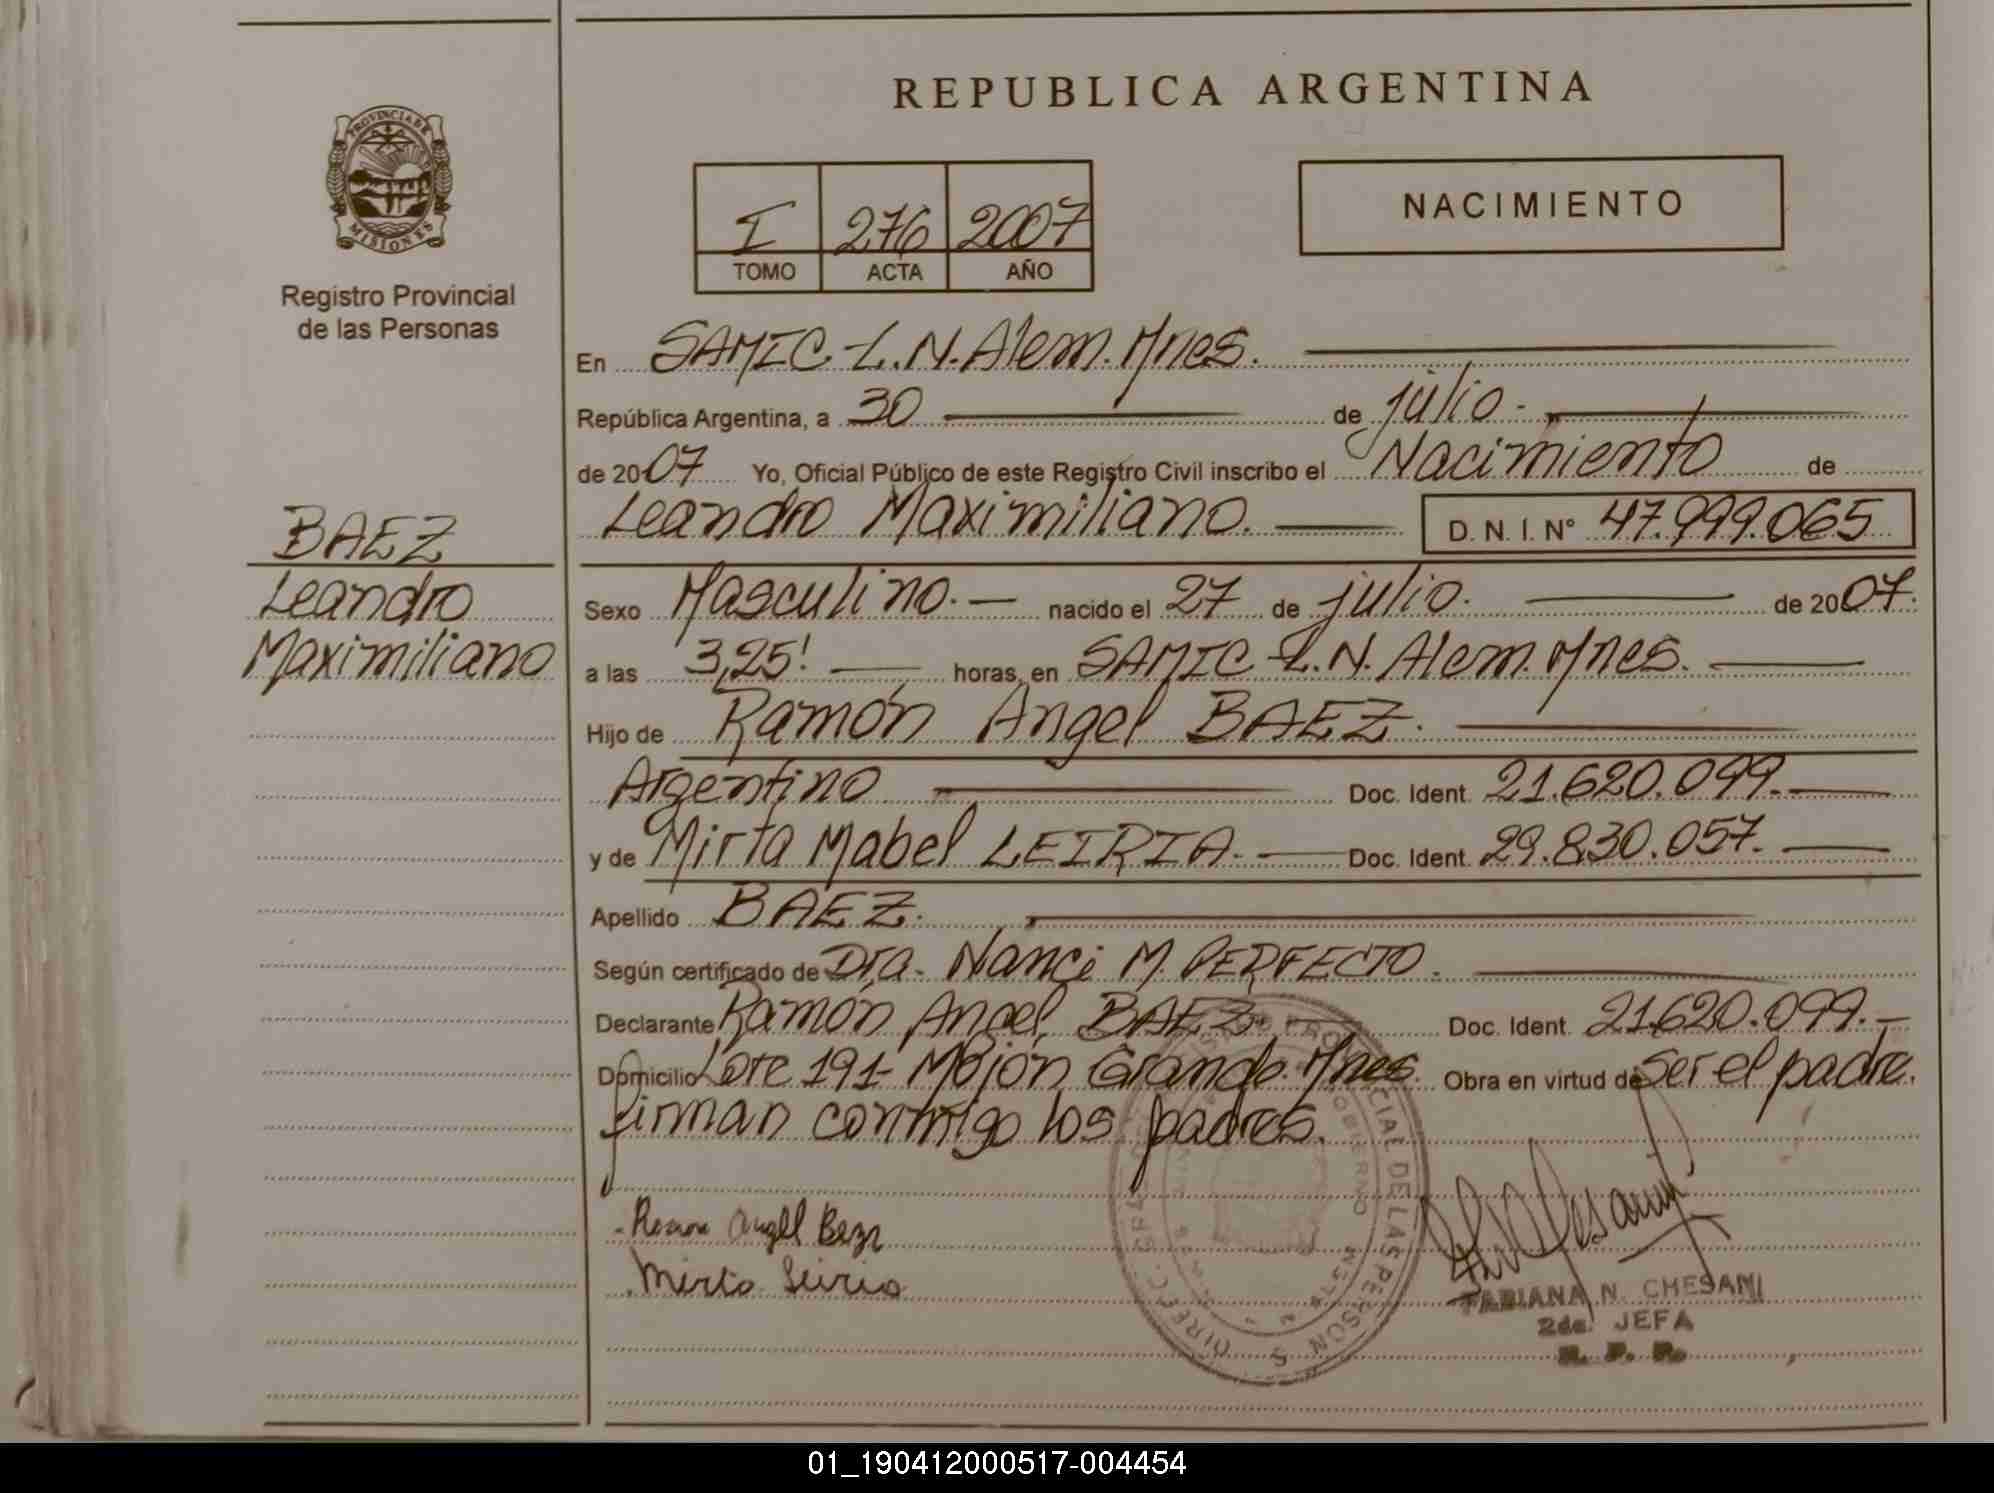 REPUBLICA ARGENTINA
PROVINCIA DE MISIONES
Registro Provincial
de las Personas
I 276 2007
TOMO ACTA AÑO
NACIMIENTO
En SAMIC L.N. Alem. Mnes.
República Argentina, a 30 de julio.
de 2007 Yo, Oficial Público de este Registro Civil inscribo el Nacimiento de
Leandro Maximiliano. D. N. I. N° 47.999.065
BAEZ
Leandro
Maximiliano
Sexo Masculino. nacido el 27 de julio. de 2007.
a las 3,25! horas, en SAMIC L.N. Alem. Mnes.
Hijo de Ramón Angel BAEZ.
Argentino Doc. Ident. 21.620.099.
y de Mirta Mabel LEIRIA. Doc. Ident. 29.830.057.
Apellido BAEZ.
Según certificado de Dra. Nanci M. PERFECTO.
Declarante Ramón Angel BAEZ Doc. Ident. 21.620.099.
Domicilio Lote 191- Mojón Grande Mnes. Obra en virtud de ser el padre.
firman conmigo los padres.
Angel Baez
Mirta Leiria
FABIANA N. CHESANI
2da. JEFA
R. P. P.
01_190412000517-004454